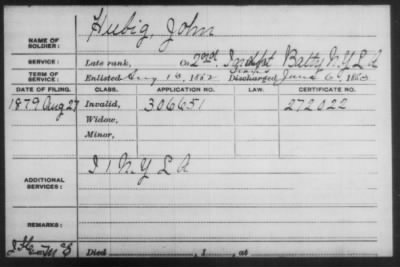 NAME OF SOLDIER: Hubig, John
SERVICE: Late rank, 2nd. Indpt Batty N.Y. L A
TERM OF SERVICE: Enlisted Aug 18, 1862 Discharged June 6, 1863
DATE OF FILING. CLASS. APPLICATION NO. LAW. CERTIFICATE NO.
1879 Aug 27 Invalid, 306651 272022
Widow,
Minor,
ADDITIONAL SERVICES: I 1 N.Y L A
REMARKS:
Died , 1 , at